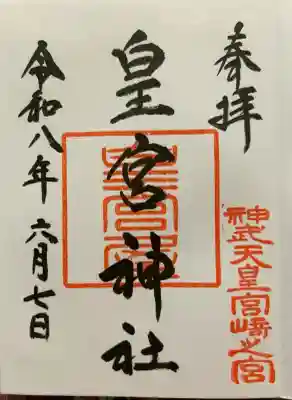 奉拝
神武天皇宮崎之宮
皇宮神社
皇宮璽
令和八年六月七日